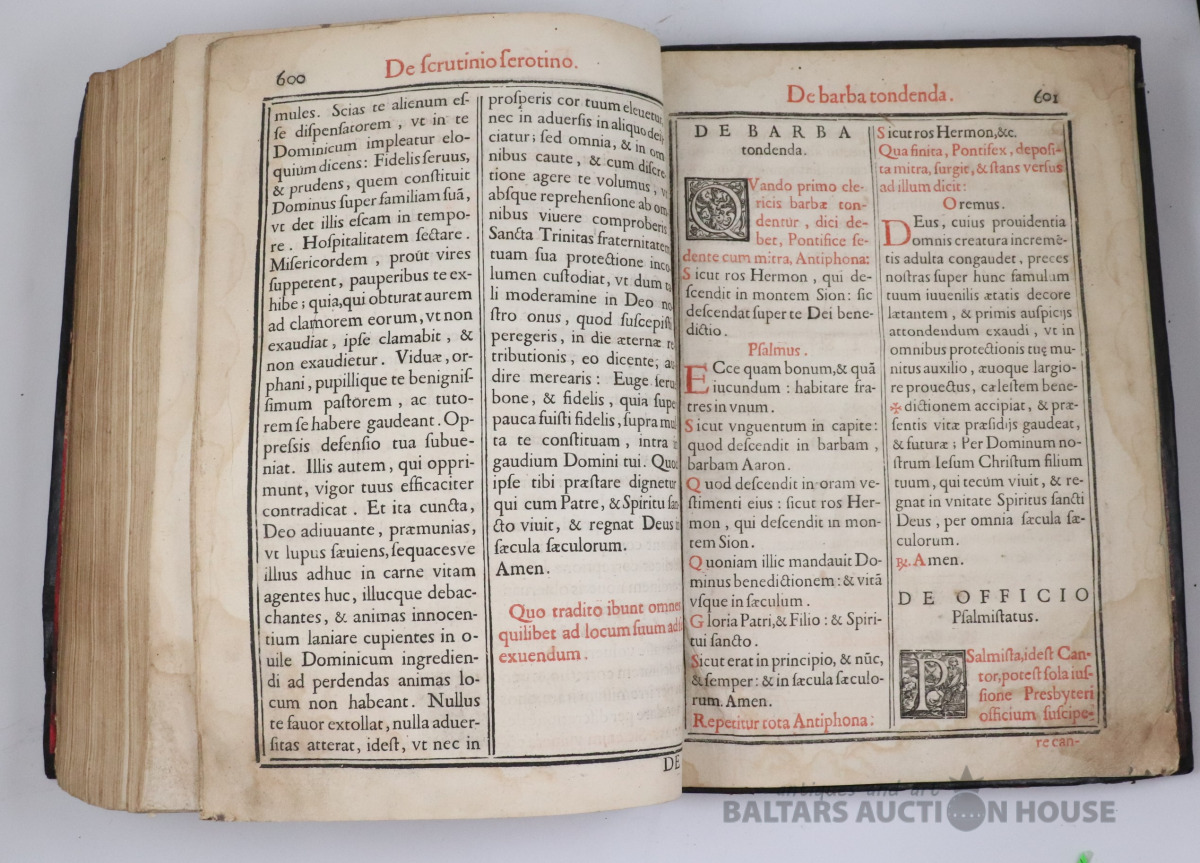 600
De ſcrutinio ſerotino.
mules. Scias te alienum eſ-
ſe diſpenſatorem, vt in te
Dominicum impleatur elo-
quium dicens: Fidelis ſeruus,
& prudens, quem conſtituit
Dominus ſuper familiam ſuã,
vt det illis eſcam in tempo-
re. Hoſpitalitatem ſectare.
Miſericordem, proùt vires
ſuppetent, pauperibus te ex-
hibe; quia, qui obturat aurem
ad clamorem eorum, vt non
exaudiat, ipſe clamabit, &
non exaudietur. Viduæ, or-
phani, pupillique te benigniſ-
ſimum paſtorem, ac tuto-
rem ſe habere gaudeant. Op-
preſsis defenſio tua ſubue-
niat. Illis autem, qui oppri-
munt, vigor tuus efficaciter
contradicat. Et ita cuncta,
Deo adiuuante, præmunias,
vt lupus ſæuiens, ſequacesve
illius adhuc in carne vitam
agentes huc, illucque debac-
chantes, & animas innocen-
tium laniare cupientes in o-
uile Dominicum ingredien-
di ad perdendas animas lo-
cum non habeant. Nullus
te fauor extollat, nulla aduer-
ſitas atterat, ideſt, vt nec in
proſperis cor tuum eleuetur,
nec in aduerſis in aliquo dei-
ciatur; ſed omnia, & in om
nibus caute, & cum diſcre
tione agere te volumus, vt
abſque reprehenſione ab om
nibus viuere comproberis
Sancta Trinitas fraternitatem
tuam ſua protectione inco
lumen cuſtodiat, vt dum ta
li moderamine in Deo no
ſtro onus, quod ſuſcepiſti
peregeris, in die æternæ re
tributionis, eo dicente, au
dire merearis: Euge ſeru
bone, & fidelis, quia ſupe
pauca fuiſti fidelis, ſupra mul
ta te conſtituam, intra in
gaudium Domini tui. Quod
ipſe tibi præſtare dignetur
qui cum Patre, & Spiritu ſan
cto viuit, & regnat Deus in
ſæcula ſæculorum.
Amen.
Quo tradito ibunt omnes
quilibet ad locum ſuum ad
exuendum.
DE
De barba tondenda.
601
DE BARBA
tondenda.
QVando primo cle-
ricis barbæ ton-
dentur, dici de-
bet, Pontifice ſe-
dente cum mitra, Antiphona:
Sicut ros Hermon, qui de-
ſcendit in montem Sion: ſic
deſcendat ſuper te Dei bene-
dictio.
Pſalmus.
ECce quam bonum, & quã
iucundum: habitare fra-
tres in vnum.
Sicut vnguentum in capite:
quod deſcendit in barbam,
barbam Aaron.
Quod deſcendit in oram ve-
ſtimenti eius: ſicut ros Her-
mon, qui deſcendit in mon-
tem Sion.
Quoniam illic mandauit Do-
minus benedictionem: & vitã
vſque in ſæculum.
Gloria Patri, & Filio: & Spiri-
tui ſancto.
Sicut erat in principio, & nũc,
& ſemper: & in ſæcula ſæculo-
rum. Amen.
Repetitur tota Antiphona:
Sicut ros Hermon, &c.
Qua finita, Pontifex, depoſi-
ta mitra, ſurgit, & ſtans verſus
ad illum dicit:
Oremus.
DEus, cuius prouidentia
omnis creatura incremẽ-
tis adulta congaudet, preces
noſtras ſuper hunc famulum
tuum iuuenilis ætatis decore
lætantem, & primis auſpicijs
attondendum exaudi, vt in
omnibus protectionis tuę mu-
nitus auxilio, æuoque largio-
re prouectus, cæleſtem bene-
✠ dictionem accipiat, & præ-
ſentis vitæ præſidijs gaudeat,
& futuræ; Per Dominum no-
ſtrum Ieſum Chriſtum filium
tuum, qui tecum viuit, & re-
gnat in vnitate Spiritus ſancti
Deus, per omnia ſæcula ſæ-
culorum.
℟. Amen.
DE OFFICIO
Pſalmiſtatus.
PSalmiſta, ideſt Can-
tor, poteſt ſola iuſ-
ſione Presbyteri
officium ſuſcipe-
re can-
antiques and art
BALTARS AUCTION HOUSE